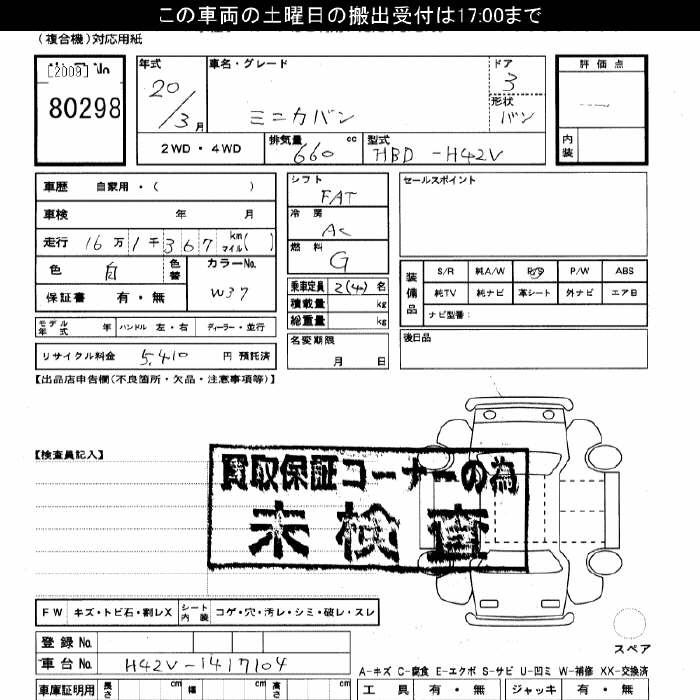 この車両の土曜日の搬出受付は17:00まで
(複合機)対応用紙
[2009] No
80298
年式
20/3月
車名・グレード
ミニカバン
ドア
3
形状
バン
評価点
内装
2WD・4WD
排気量 660 cc
型式 HBD-H42V
車歴 自家用・( )
車検 年 月
走行 16万1千367 km マイル( )
色 白 色替
カラーNo. W37
保証書 有・無
モデル年式 年 ハンドル 左・右 ディーラー・並行
リサイクル料金 5,410 円 預託済
シフト
FAT
冷房
AC
燃料
G
乗車定員 2(4)名
積載量 kg
総重量 kg
名変期限
月 日
セールスポイント
装備品
S/R 純A/W P/S P/W ABS
純TV 純ナビ 革シート 外ナビ エアB
ナビ型番:
後日品
【出品店申告欄(不良箇所・欠品・注意事項等)】
【検査員記入】
買取保証コーナーの為
未検査
FW キズ・トビ石・割レX シート内装 コゲ・穴・汚レ・シミ・破レ・スレ
スペア
登録No.
車台No. H42V-1417104
A-キズ C-腐食 E-エクボ S-サビ U-凹ミ W-補修 XX-交換済
車庫証明用 長さ cm 幅 cm 高さ cm
工具 有・無 ジャッキ 有・無